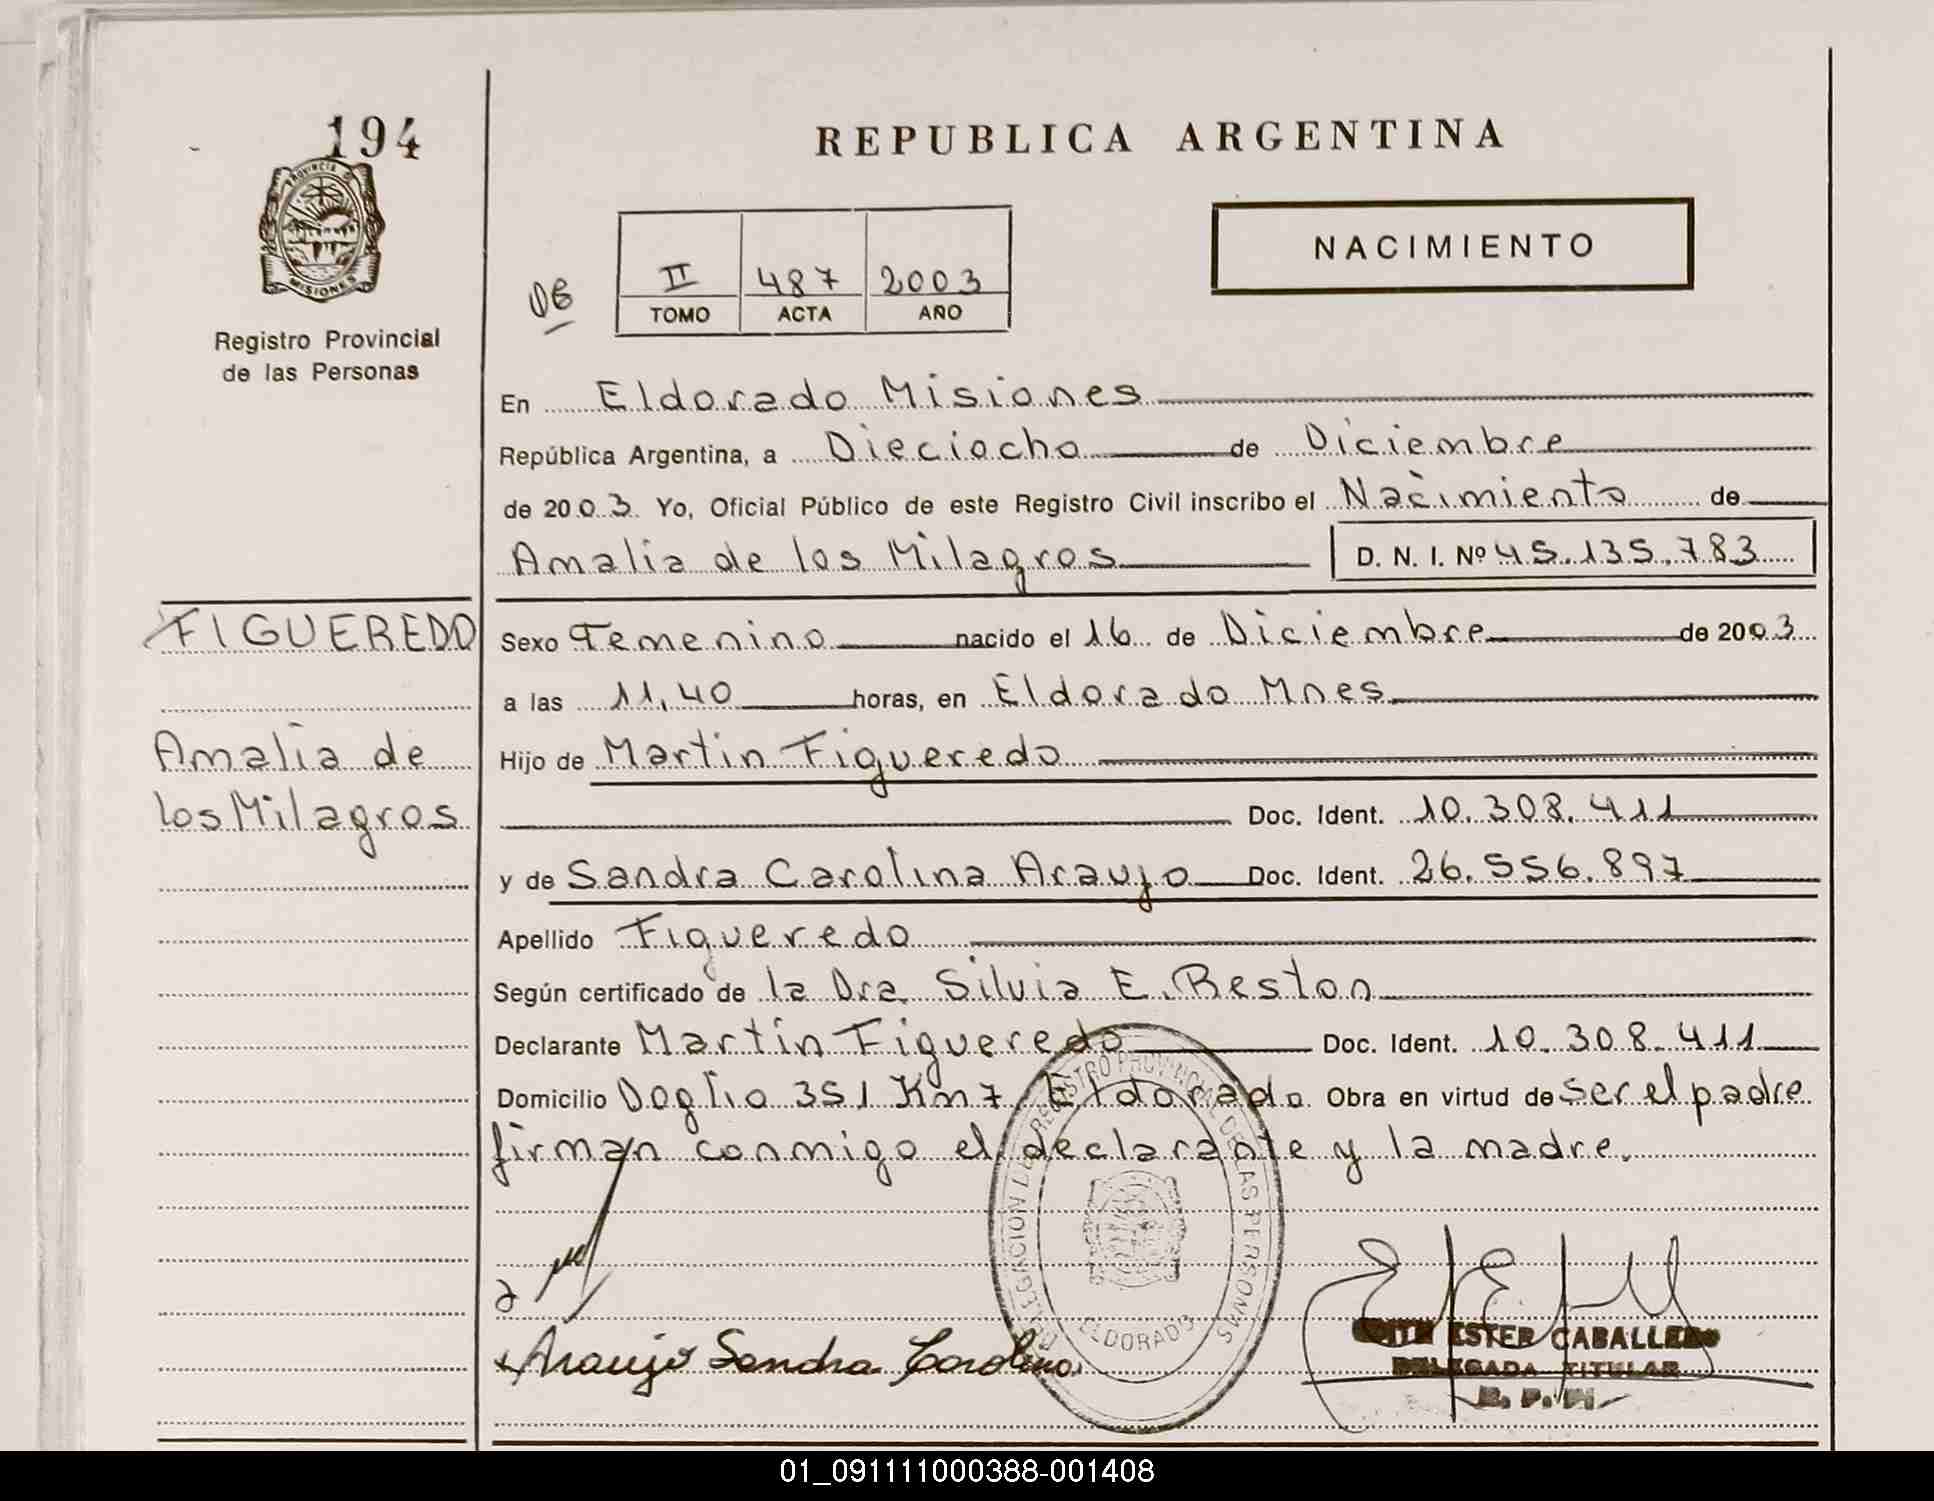 194
PROVINCIA D
MISIONES
Registro Provincial
de las Personas
REPUBLICA ARGENTINA
NACIMIENTO
II 487 2003
TOMO ACTA AÑO
En Eldorado Misiones
República Argentina, a Dieciocho de Diciembre
de 2003. Yo, Oficial Público de este Registro Civil inscribo el Nacimiento de
Amalia de los Milagros D. N. I. Nº 45.135.783
FIGUEREDO
Amalia de
los Milagros
Sexo Femenino nacido el 16 de Diciembre de 2003
a las 11,40 horas, en Eldorado Mnes
Hijo de Martin Figueredo
Doc. Ident. 10.308.411
y de Sandra Carolina Araujo Doc. Ident. 26.556.897
Apellido Figueredo
Según certificado de la Dra. Silvia E. Reston
Declarante Martín Figueredo Doc. Ident. 10.308.411
Domicilio Doglio 351 Km 7 Eldorado Obra en virtud de ser el padre
firman conmigo el declarante y la madre.
DELEGACION DEL REGISTRO PROVINCIAL DE LAS PERSONAS
ELDORADO
Araujo Sandra Carolina
ESTER CABALLERO
DELEGADA TITULAR
01_091111000388-001408